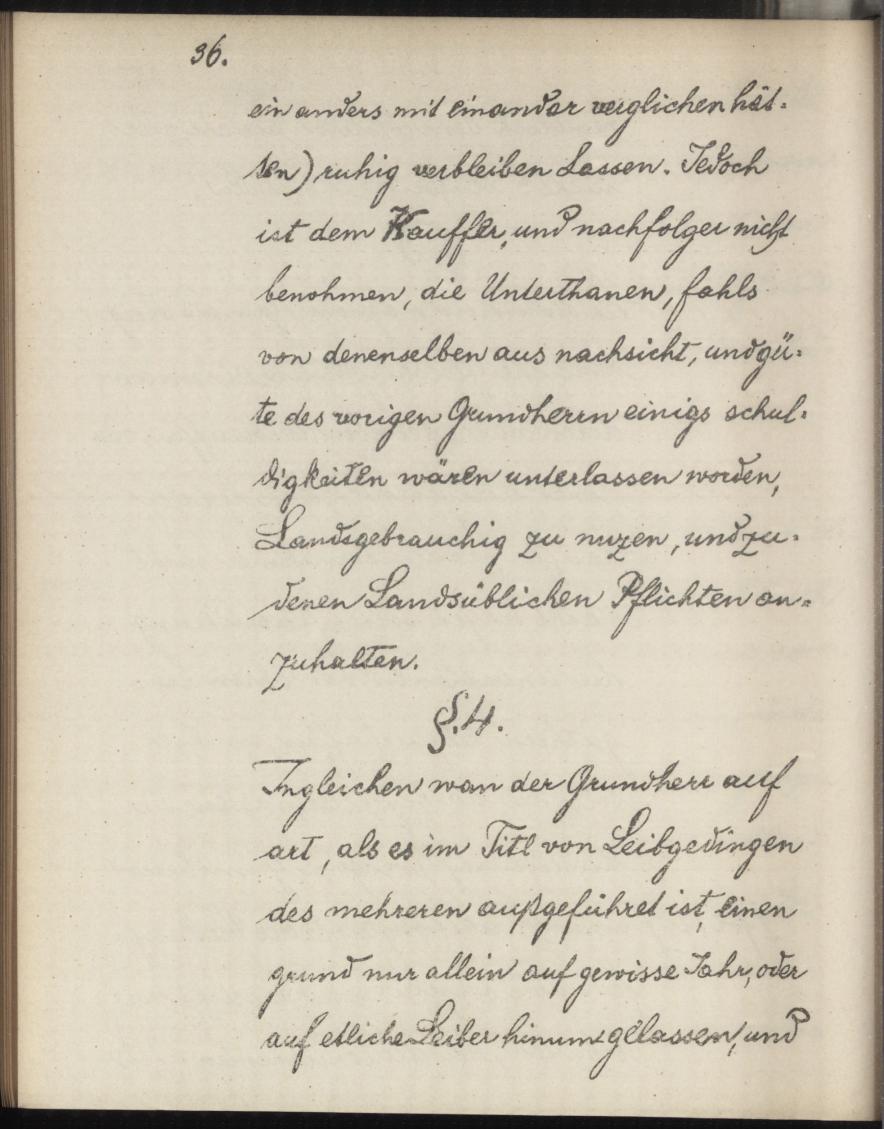 36.
ein anders mit einander verglichen hät=
ten) ruhig verbleiben Lassen. Jedoch
ist dem Kauffer, und nachfolger nicht
benohmen, die Unterthanen, fahls
von denenselben aus nachsicht, und gü=
te des vorigen Grundherrn einigs schul=
digkeiten wären unterlassen worden,
Landsgebrauchig zu nuzen, und zu=
denen Landsüblichen Pflichten an=
zuhalten.
§. 4.
Ingleichen wan der Grundherr auf
art, als es im Titl von Leibgedingen
des mehreren außgeführet ist, einen
grund nur allein auf gewisse Jahr, oder
auf etliche Leiber hinumgelassen, und